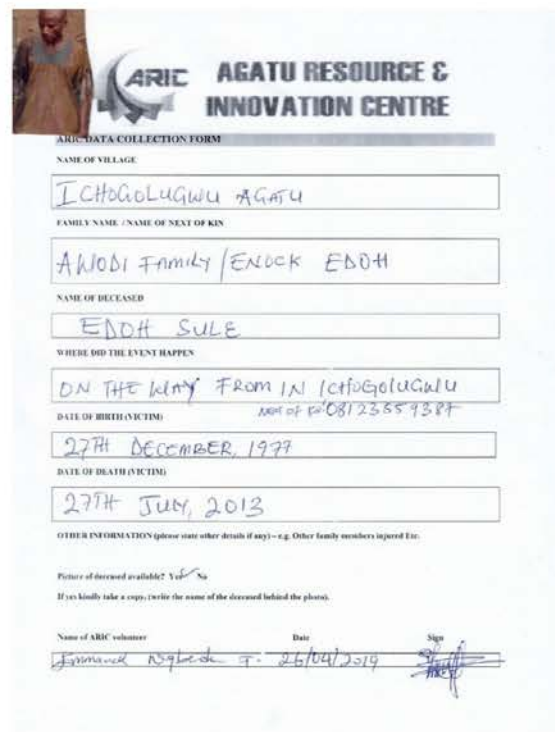 ARIC
AGATU RESOURCE &
INNOVATION CENTRE
ARIC DATA COLLECTION FORM
NAME OF VILLAGE
ICHOGOLUGWU AGATU
FAMILY NAME / NAME OF NEXT OF KIN
AWODI FAMILY / ENOCK EDOH
NAME OF DECEASED
EDOH SULE
WHERE DID THE EVENT HAPPEN
ON THE WAY FROM IN ICHOGOLUGWU
NEXT OF KIN 08123559387
DATE OF BIRTH (VICTIM)
27TH DECEMBER, 1977
DATE OF DEATH (VICTIM)
27TH JULY, 2013
OTHER INFORMATION (please state other details if any) – e.g. Other family members injured Etc.
Picture of deceased available? Yes No
If yes kindly take a copy, (write the name of the deceased behind the photo).
Name of ARIC volunteer Date Sign
Emmanuel T. 26/04/2019